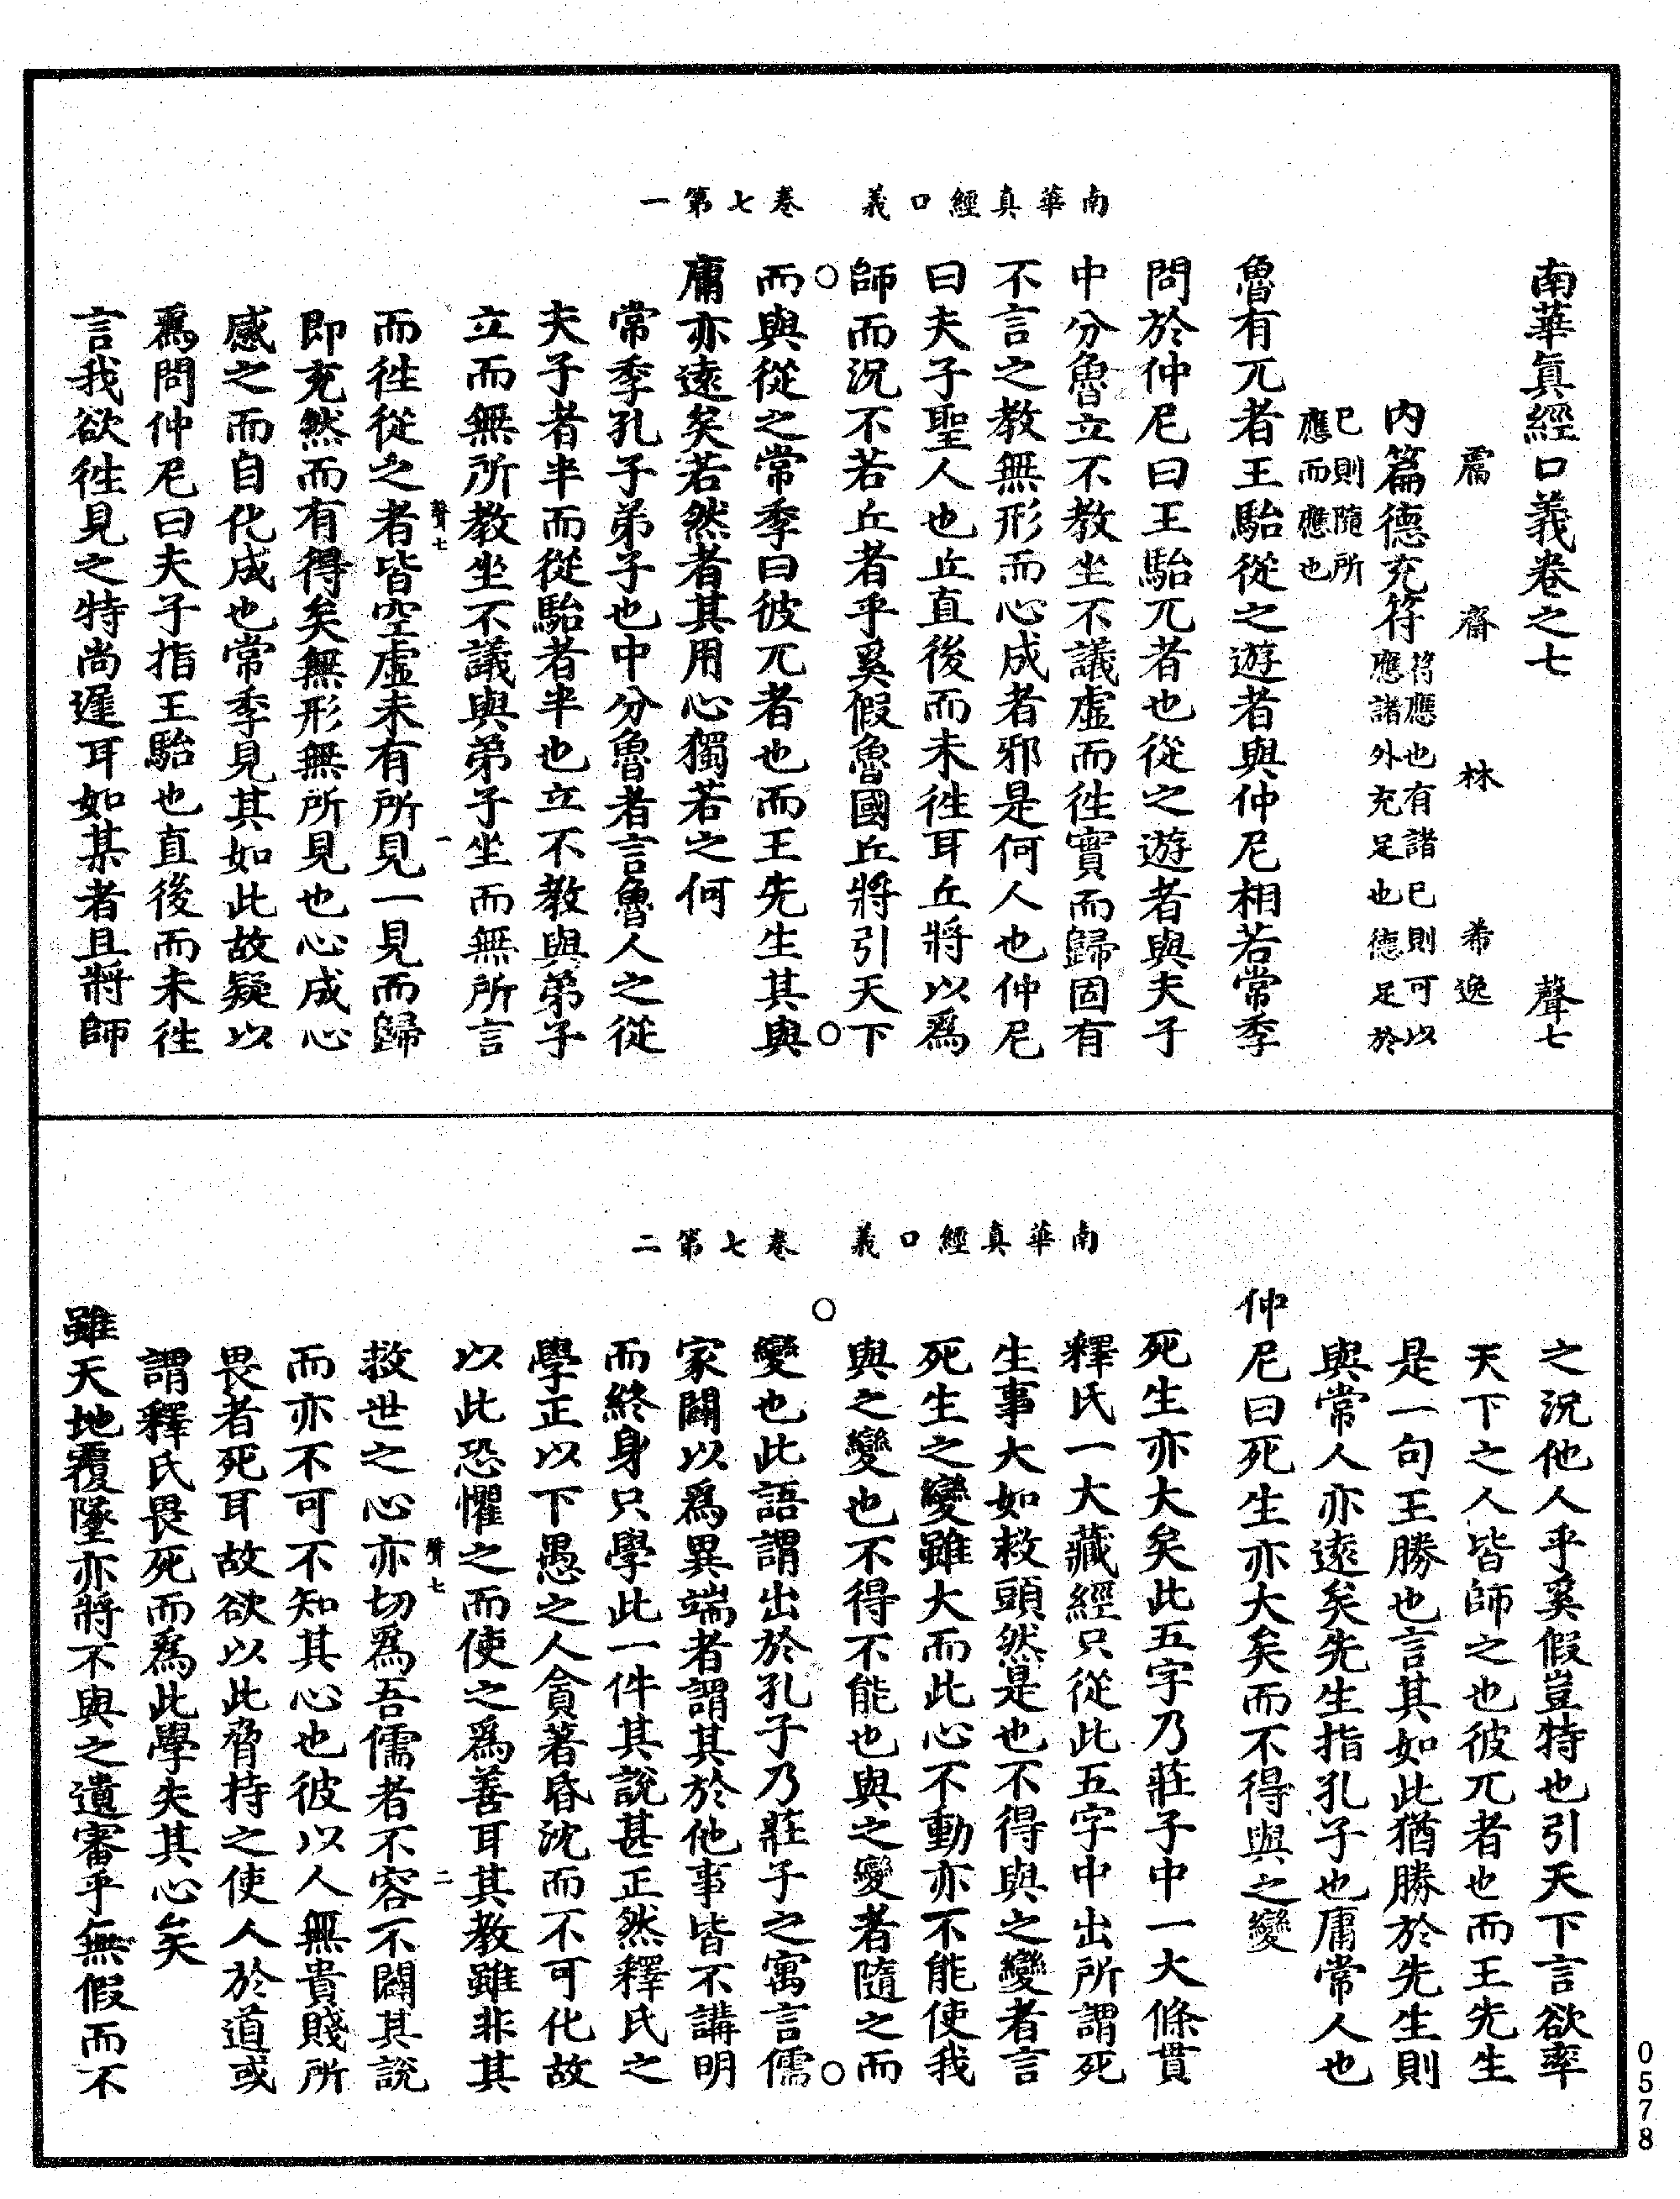 南華真經口義　卷七第一
南華眞經口義卷之七　聲七
鬳齋林希逸
內篇德充符符應也有諸已則可以應諸外充足也德足於
已則隨所應而應也
魯有兀者王駘從之遊者與仲尼相若常季
問於仲尼曰王駘兀者也從之遊者與夫子
中分魯立不教坐不議虛而徃實而歸固有
不言之教無形而心成者邪是何人也仲尼
曰夫子聖人也丘直後而未徃耳丘將以爲
師而況不若丘者乎奚假魯國丘將引天下
而與從之常季曰彼兀者也而王先生其與
庸亦遠矣若然者其用心獨若之何
常季孔子弟子也中分魯者言魯人之從
夫子者半而從駘者半也立不教與弟子
立而無所教坐不議與弟子坐而無所言
聲七　一
而徃從之者皆空虛未有所見一見而歸
即充然而有得矣無形無所見也心成心
感之而自化成也常季見其如此故疑以
爲問仲尼曰夫子指王駘也直後而未徃
言我欲徃見之特尚遲耳如某者且將師
南華真經口義　卷七第二
之況他人乎奚假豈特也引天下言欲率
天下之人皆師之也彼兀者也而王先生
是一句王勝也言其如此猶勝於先生則
與常人亦遠矣先生指孔子也庸常人也
仲尼曰死生亦大矣而不得與之變
死生亦大矣此五字乃莊子中一大條貫
釋氏一大藏經只從此五字中出所謂死
生事大如救頭然是也不得與之變者言
死生之變雖大而此心不動亦不能使我
與之變也不得不能也與之變者隨之而
變也此語謂出於孔子乃莊子之寓言儒
家闢以爲異端者謂其於他事皆不講明
而終身只學此一件其說甚正然釋氏之
學正以下愚之人貪著昏沈而不可化故
以此恐懼之而使之爲善耳其教雖非其
聲七　二
救世之心亦切爲吾儒者不容不闢其說
而亦不可不知其心也彼以人無貴賤所
畏者死耳故欲以此脅持之使人於道或
謂釋氏畏死而爲此學失其心矣
雖天地覆墜亦將不與之遺審乎無假而不
0578